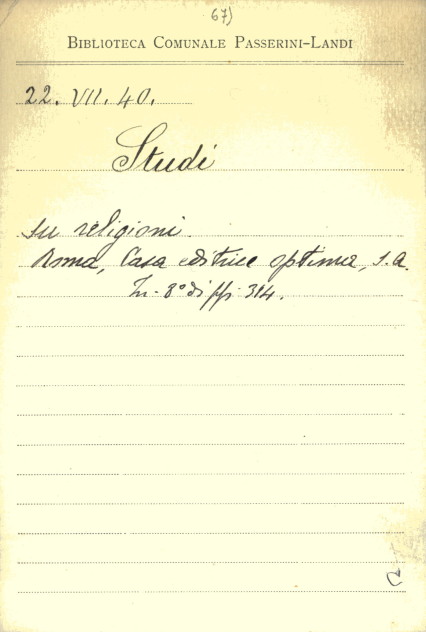 67)
BIBLIOTECA COMUNALE PASSERINI-LANDI
22. VII. 40.
Studi
su religioni
Roma, Casa editrice optima, s.a.
In-8° di pp. 314.